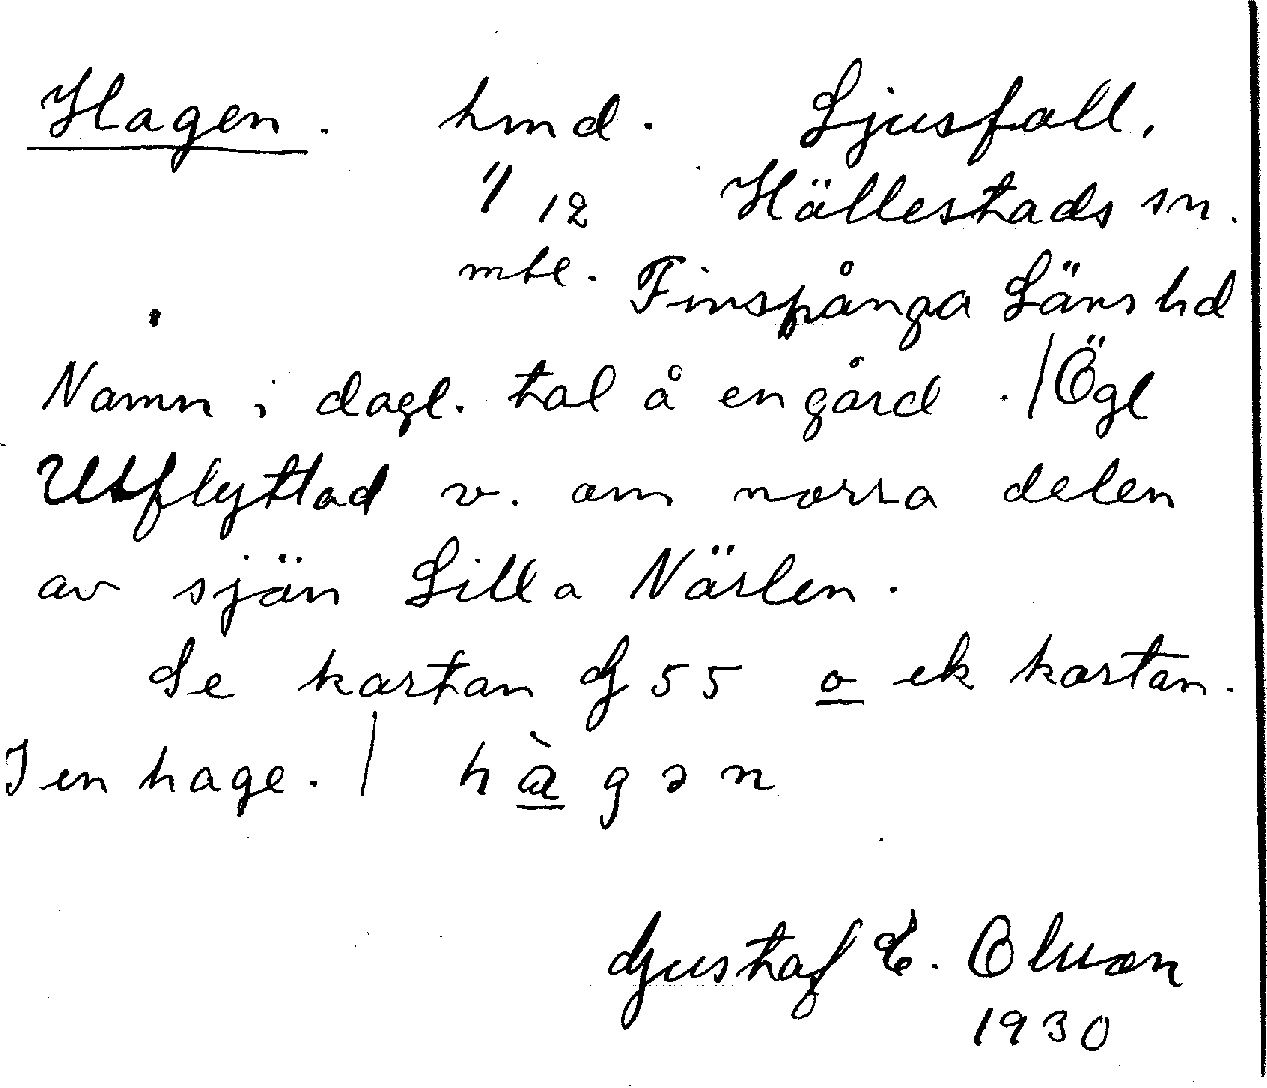 Hagen. hmd. Ljusfall,
1/12 Hällestads sn.
mtl. Finspånga Läns hd
Namn i dagl. tal å en gård. / Ögl
Utflyttad v. om norra delen
av sjön Lilla Närlen.
Se kartan G 55 o ek kartan.
I en hage. / hàgən
Gustaf E. Olson
1930